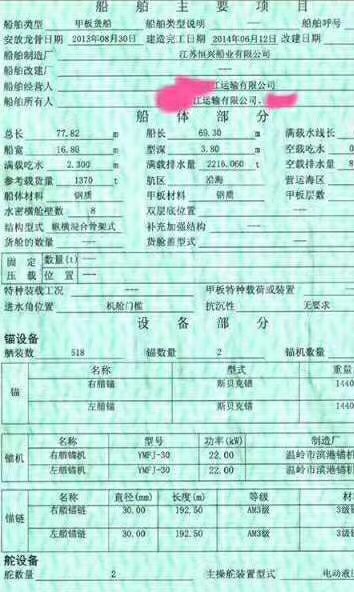 船 舶 主 要 项 目
船舶类型 甲板货船 船舶类型说明 --- 船舶呼号
安放龙骨日期 2013年08月30日 建造完工日期 2014年06月12日 改建日期
船舶制造厂 江苏恒兴船业有限公司
船舶改建厂 ---
船舶经营人 江运输有限公司
船舶所有人 江运输有限公司.
船 体 部 分
总长 77.82 m 船长 69.30 m 满载水线长
船宽 16.80 m 型深 3.80 m 空载吃水 0
满载吃水 2.300 m 满载排水量 2216.060 t 空载排水量 8
参考载货量 1370 t 航区 沿海 营运海区
船体材料 钢质 甲板材料 钢质 甲板层数
水密横舱壁数 8 双层底位置 ---
结构型式 纵横混合骨架式 补充加强结构 ---
货舱的数量 --- 货舱盖型式 ---
固 定 数量(t) ---
压 载 位 置 ---
特种装载工况 --- 甲板特种载荷或装置 ---
进水角位置 机舱门槛 抗沉性 无要求
设 备 部 分
锚设备
舾装数 518 锚数量 2 锚机数量
名称 型式 重量
锚 右艏锚 斯贝克锚 1440
左艏锚 斯贝克锚 1440
名称 型号 功率(kW) 制造厂
锚机 右艏锚机 YMFJ-30 22.00 温岭市滨港锚机
左艏锚机 YMFJ-30 22.00 温岭市滨港锚机
名称 直径(mm) 长度(m) 等级 材
锚链 右艏锚链 30.00 192.50 AM3级 3级
左艏锚链 30.00 192.50 AM3级 3级
舵设备
舵数量 2 主操舵装置型式 电动液